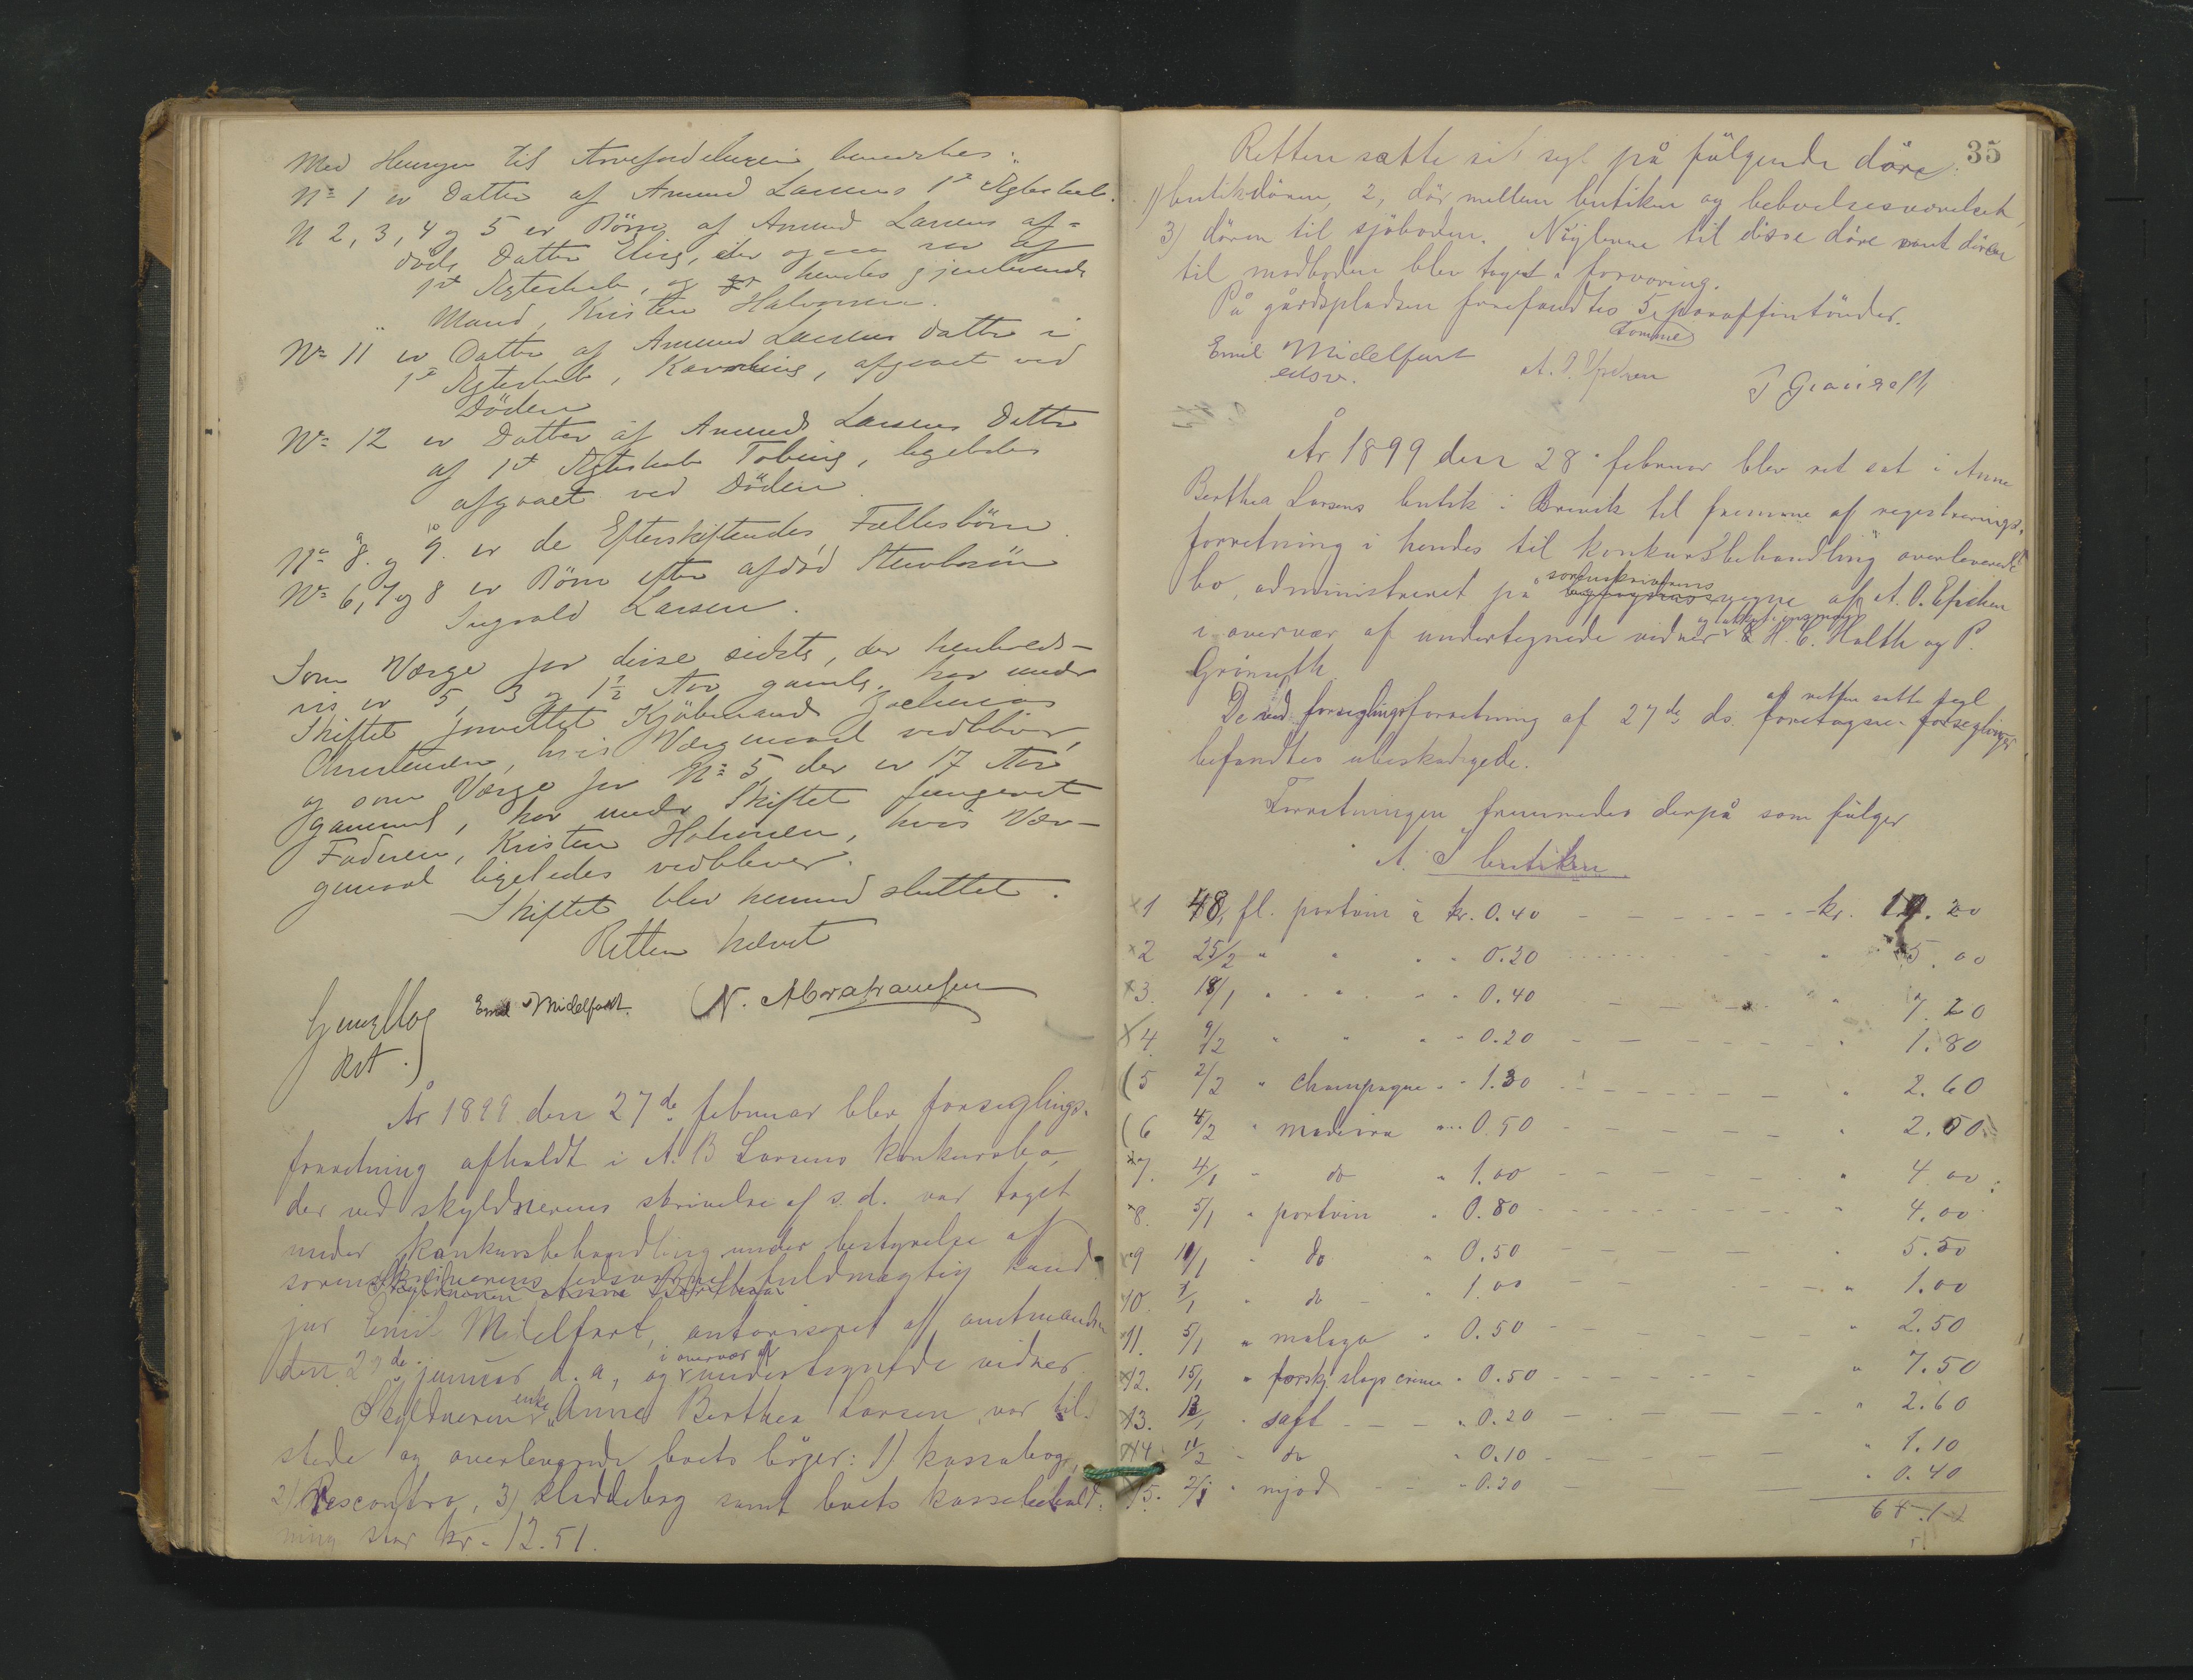 Med Hensyn til Arvefordelingen bemærkes:
No 1 er Datter af Amund Larsens 1ste Ægteskab.
N 2, 3, 4 og 5 er Börn af Amund Larsens af-
döde Datter Elise, der ogsaa var af
1ste Ægteskab, og hendes gjenlevende
Mand, Kristen Halvorsen.
No 11 er Datter af Amund Larsens Datter i
1ste Ægteskab, Karoline, afgaaet ved
Döden
No 12 er Datter af Amund Larsens Datter
af 1ste Ægteskab Tobine, ligeledes
afgaaet ved Döden.
No 9 og 10 er de Efterskiftendes Fællesbörn.
No 6, 7 og 8 er Börn efter afdöd Stevbarn
Ingvald Larsen.
Som Værge for disse sidste, der henholds-
vis er 5, 3 og 1½ Aar gamle, har under
Skiftet forrettet Kjöbmand
Christensen, hvis Værgemaal vedbliver,
og som Værge for No 5 der er 17 Aar
gammel, har under Skiftet fungeret
Faderen, Kristen Halvorsen, hvis Vær-
gemaal ligeledes vedbliver.
Skiftet blev hermed sluttet.
Retten hævet
Emil Midelfart. N. Abrahamsen
År 1899 den 27de februar blev forseglings-
forretning afholdt i A. B Larsens konkursbo,
der ved skyldnerens skrivelse af s. d. var taget
under konkursbehandling under bestyrelse af
sorenskriverens edsvorne fuldmægtig kand.
jur Emil Midelfart, autoriseret af amtmanden
den 27de januar d. a, og i overvær af undertegnede vidner.
Skyldneren enke Anne Berthea Larsen var til-
stede og overleverede boets böger: 1) kassabog,
2) Rescontro, 3) kladdebog samt boets kassabehold-
ning stor kr. 12.51.
35
Retten satte sit segl på fölgende döre:
1) butikdören, 2, dör mellem butiken og beboelsesværelset,
3) dören til sjöboden. Nöglerne til disse döre samt dören
til madboden blev taget i forvaring.
På gårdspladsen forefandtes 5 tomme paraffintönder.
Emil Midelfart
edsv.
År 1899 den 28 februar blev ret sat i Anne
Berthea Larsens butik i Brevik til fremme af registrerings-
forretning i hendes til konkursbehandling overleverede
bo, administreret på sorenskriverens vegne af A. O.
i overvær af undertegnede vidner og H. C. Holth og P.
De ved forseglingsforretning af 27de ds. af retten satte segl
befandtes ubeskadigede.
Forretningen fremmedes derpå som fölger
A. I butiken
1 48/1 fl. portvin à kr. 0.40 kr. 19.20
2 25/2 " " " 0.20 " 5.00
3. 18/1 " " " 0.40 " 7.20
4. 9/2 " " " 0.20 " 1.80
5 2/2 " champagne " 1.30 " 2.60
6 4/2 " madeira " 0.50 " 2.00
7. 4/1 " do " 1.00 " 4.00
8. 5/1 " portvin " 0.80 " 4.00
9 11/1 " do " 0.50 " 5.50
10. 1/1 " do " 1.00 " 1.00
11. 5/1 " malaga " 0.50 " 2.50
12. 15/1 " forskj. slags creme " 0.50 " 7.50
13. 13/1 " saft " 0.20 " 2.60
14. 11/2 " do " 0.10 " 1.10
15. 2/1 " mjød " 0.20 " 0.40